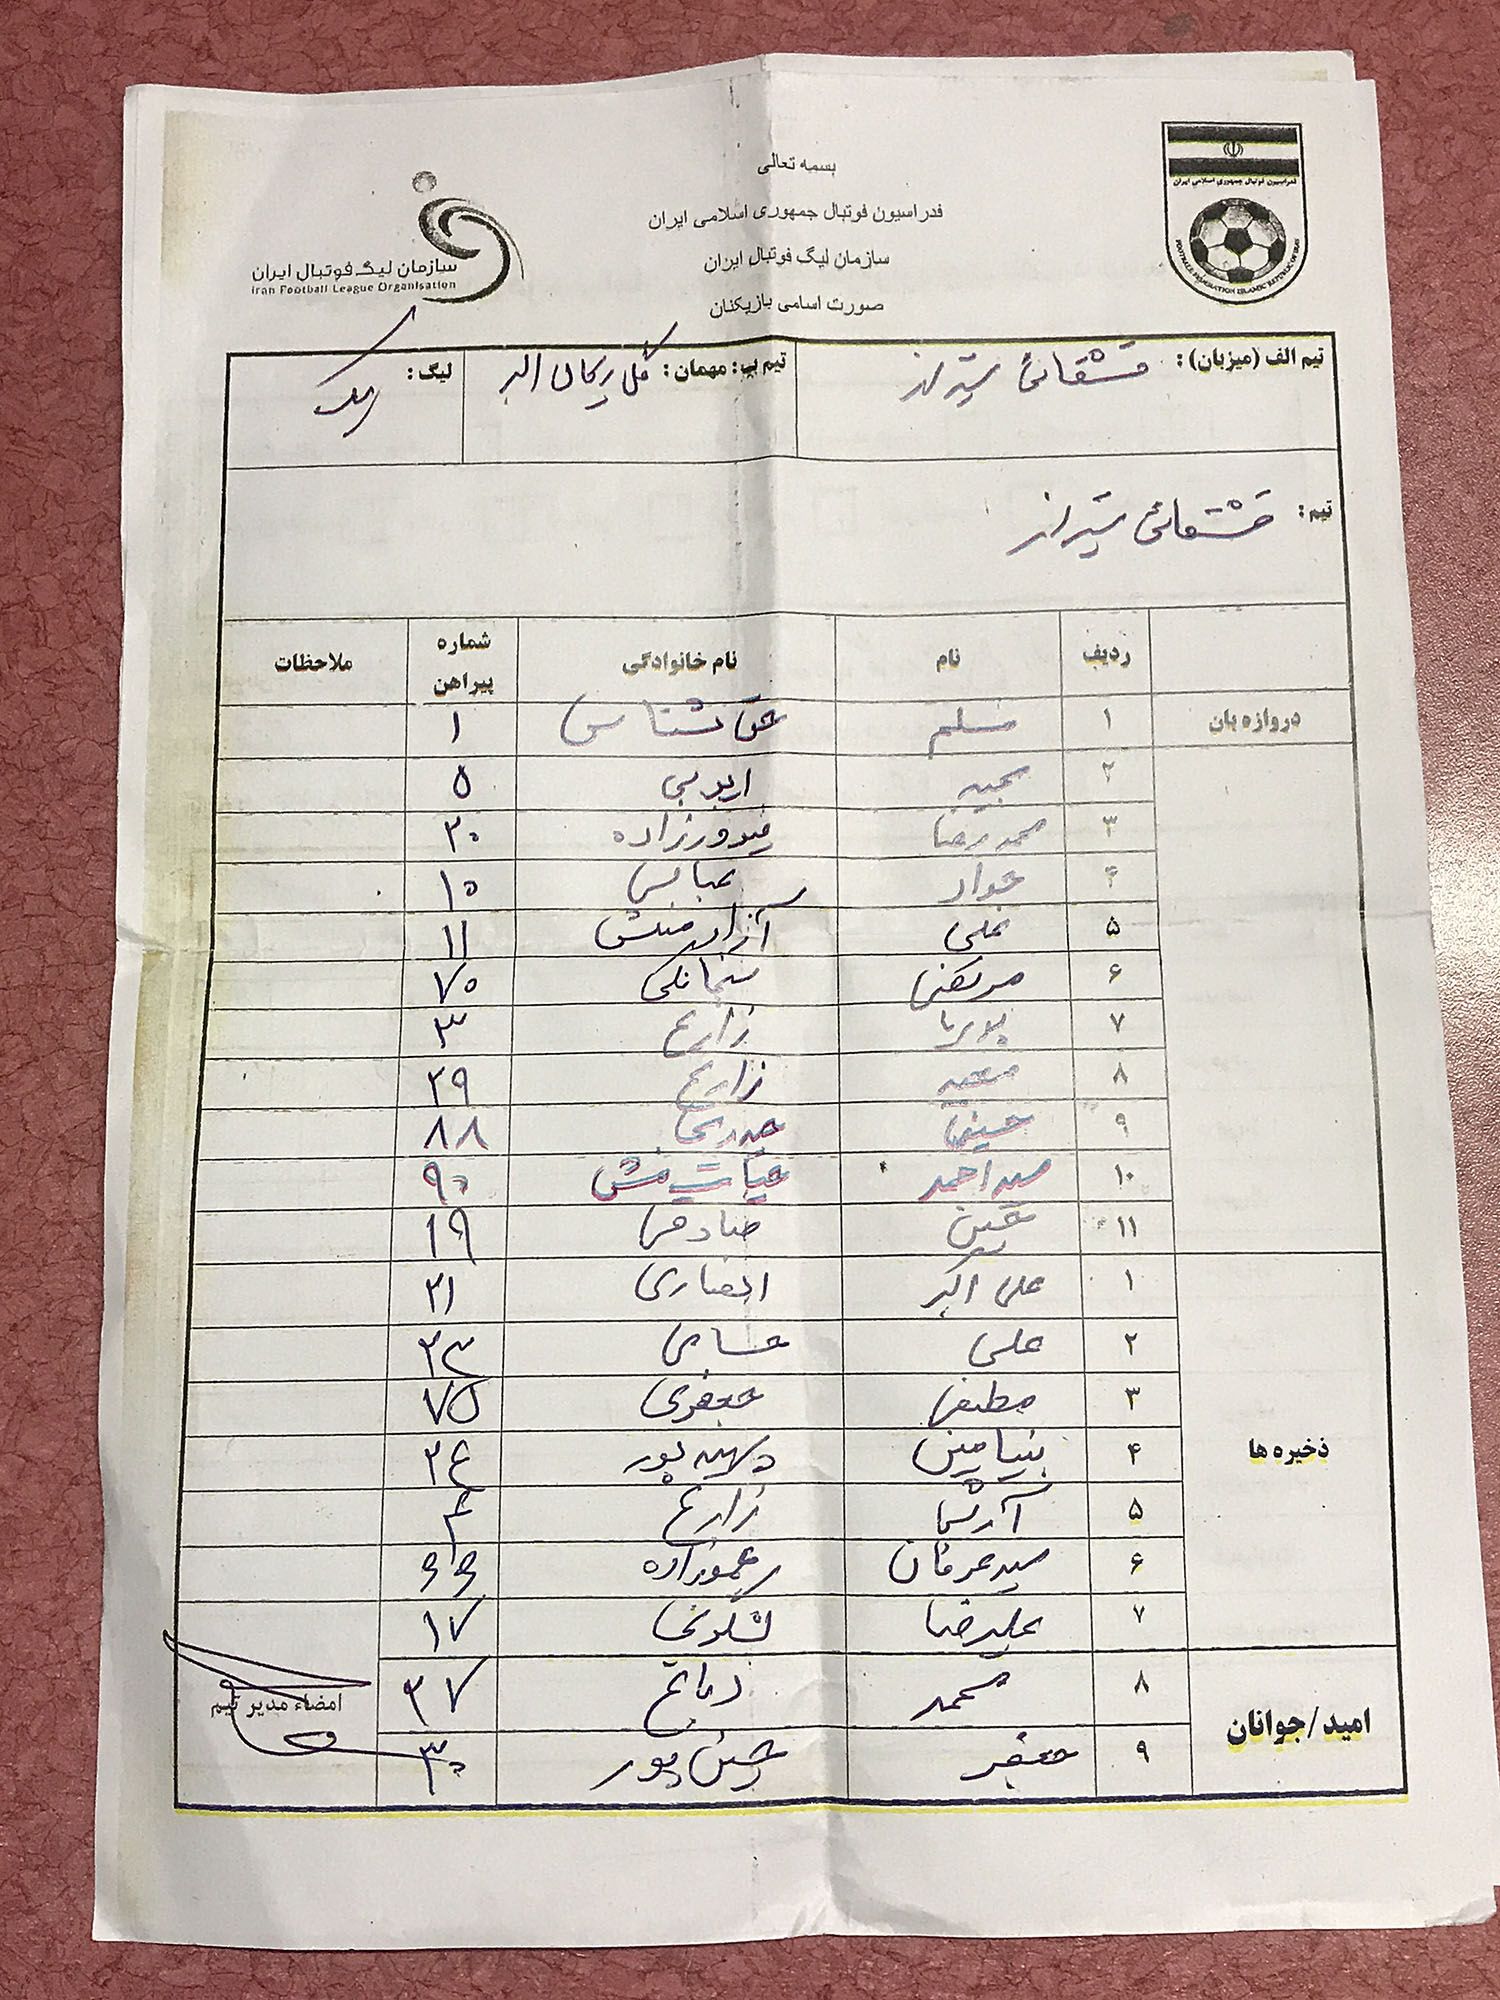 بسمه تعالی
فدراسیون فوتبال جمهوری اسلامی ایران
سازمان لیگ فوتبال ایران
صورت اسامی بازیکنان
فدراسیون فوتبال جمهوری اسلامی ایران
FOOTBALL FEDERATION ISLAMIC REPUBLIC OF IRAN
سازمان لیگ فوتبال ایران
Iran Football League Organisation
تیم الف (میزبان): قشقائی شیراز تیم ب: مهمان: گل ریحان البرز لیگ: یک
تیم: قشقائی شیراز
ردیف نام نام خانوادگی شماره پیراهن ملاحظات
دروازه بان ۱ مسلم حق شناس ۱
۲ مجید ایوبی ۵
۳ محمدرضا فیروززاده ۲۰
۴ جواد عباسی ۱۰
۵ علی آزادمنش ۱۱
۶ مرتضی ۷۰
۷ پوریا زارع ۳
۸ سعید زارع ۲۹
۹ حسین حیدری ۸۸
۱۰ سید احمد حیات منش ۹۰
۱۱ صادقی ۱۹
ذخیره ها
۱ علی اکبر انصاری ۲۱
۲ علی حسامی ۲۳
۳ مصطفی جعفری ۷۵
۴ بنیامین پور ۲۴
۵ آرشا زارع ۴
۶ سید عرفان عموزاده ۶۶
۷ علیرضا ۱۷
امید/جوانان
۸ محمد ۲۷
۹ جعفر حسن پور ۳۰
امضاء مدیر تیم